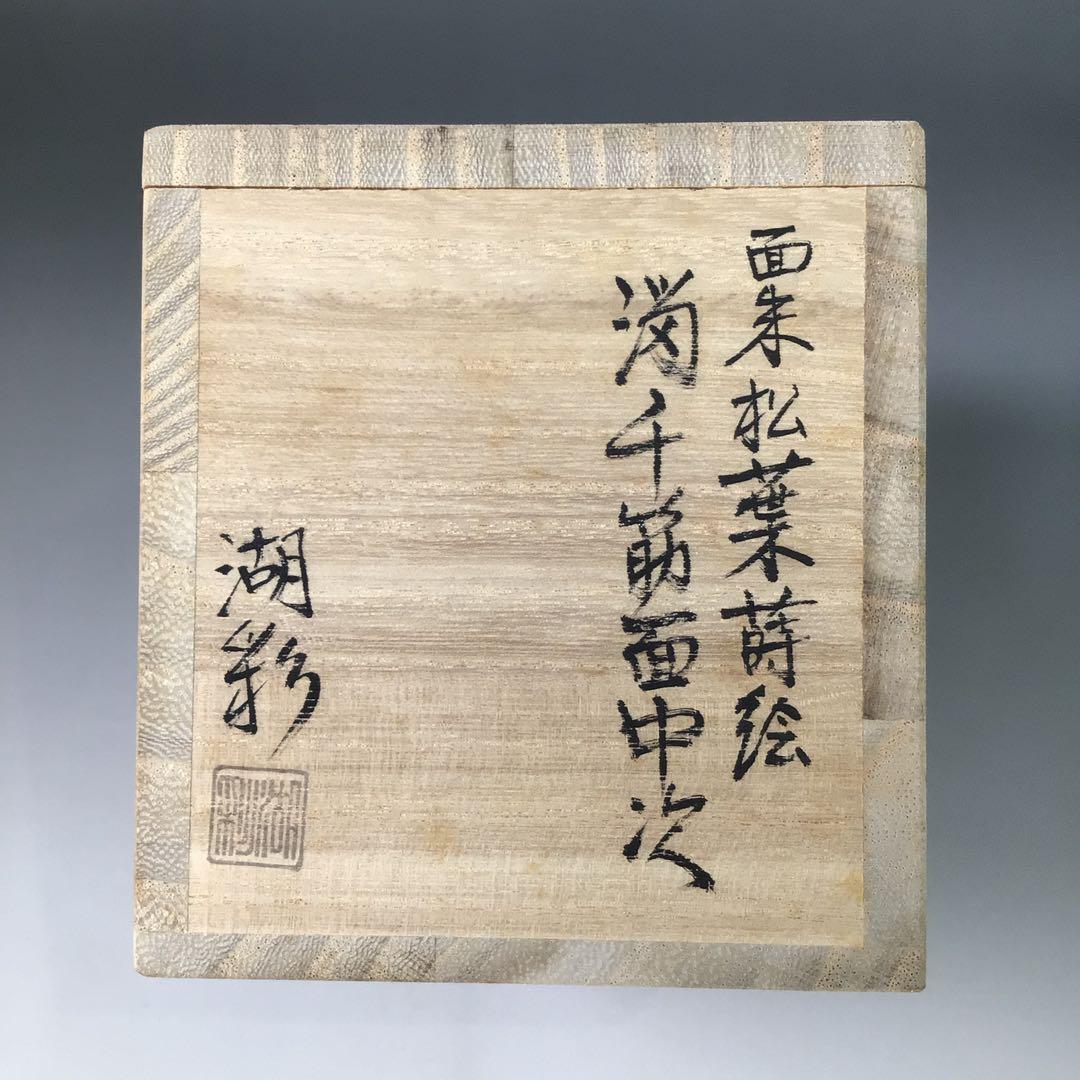 面朱松葉蒔絵
溜千筋面中次
湖彩
湖彩